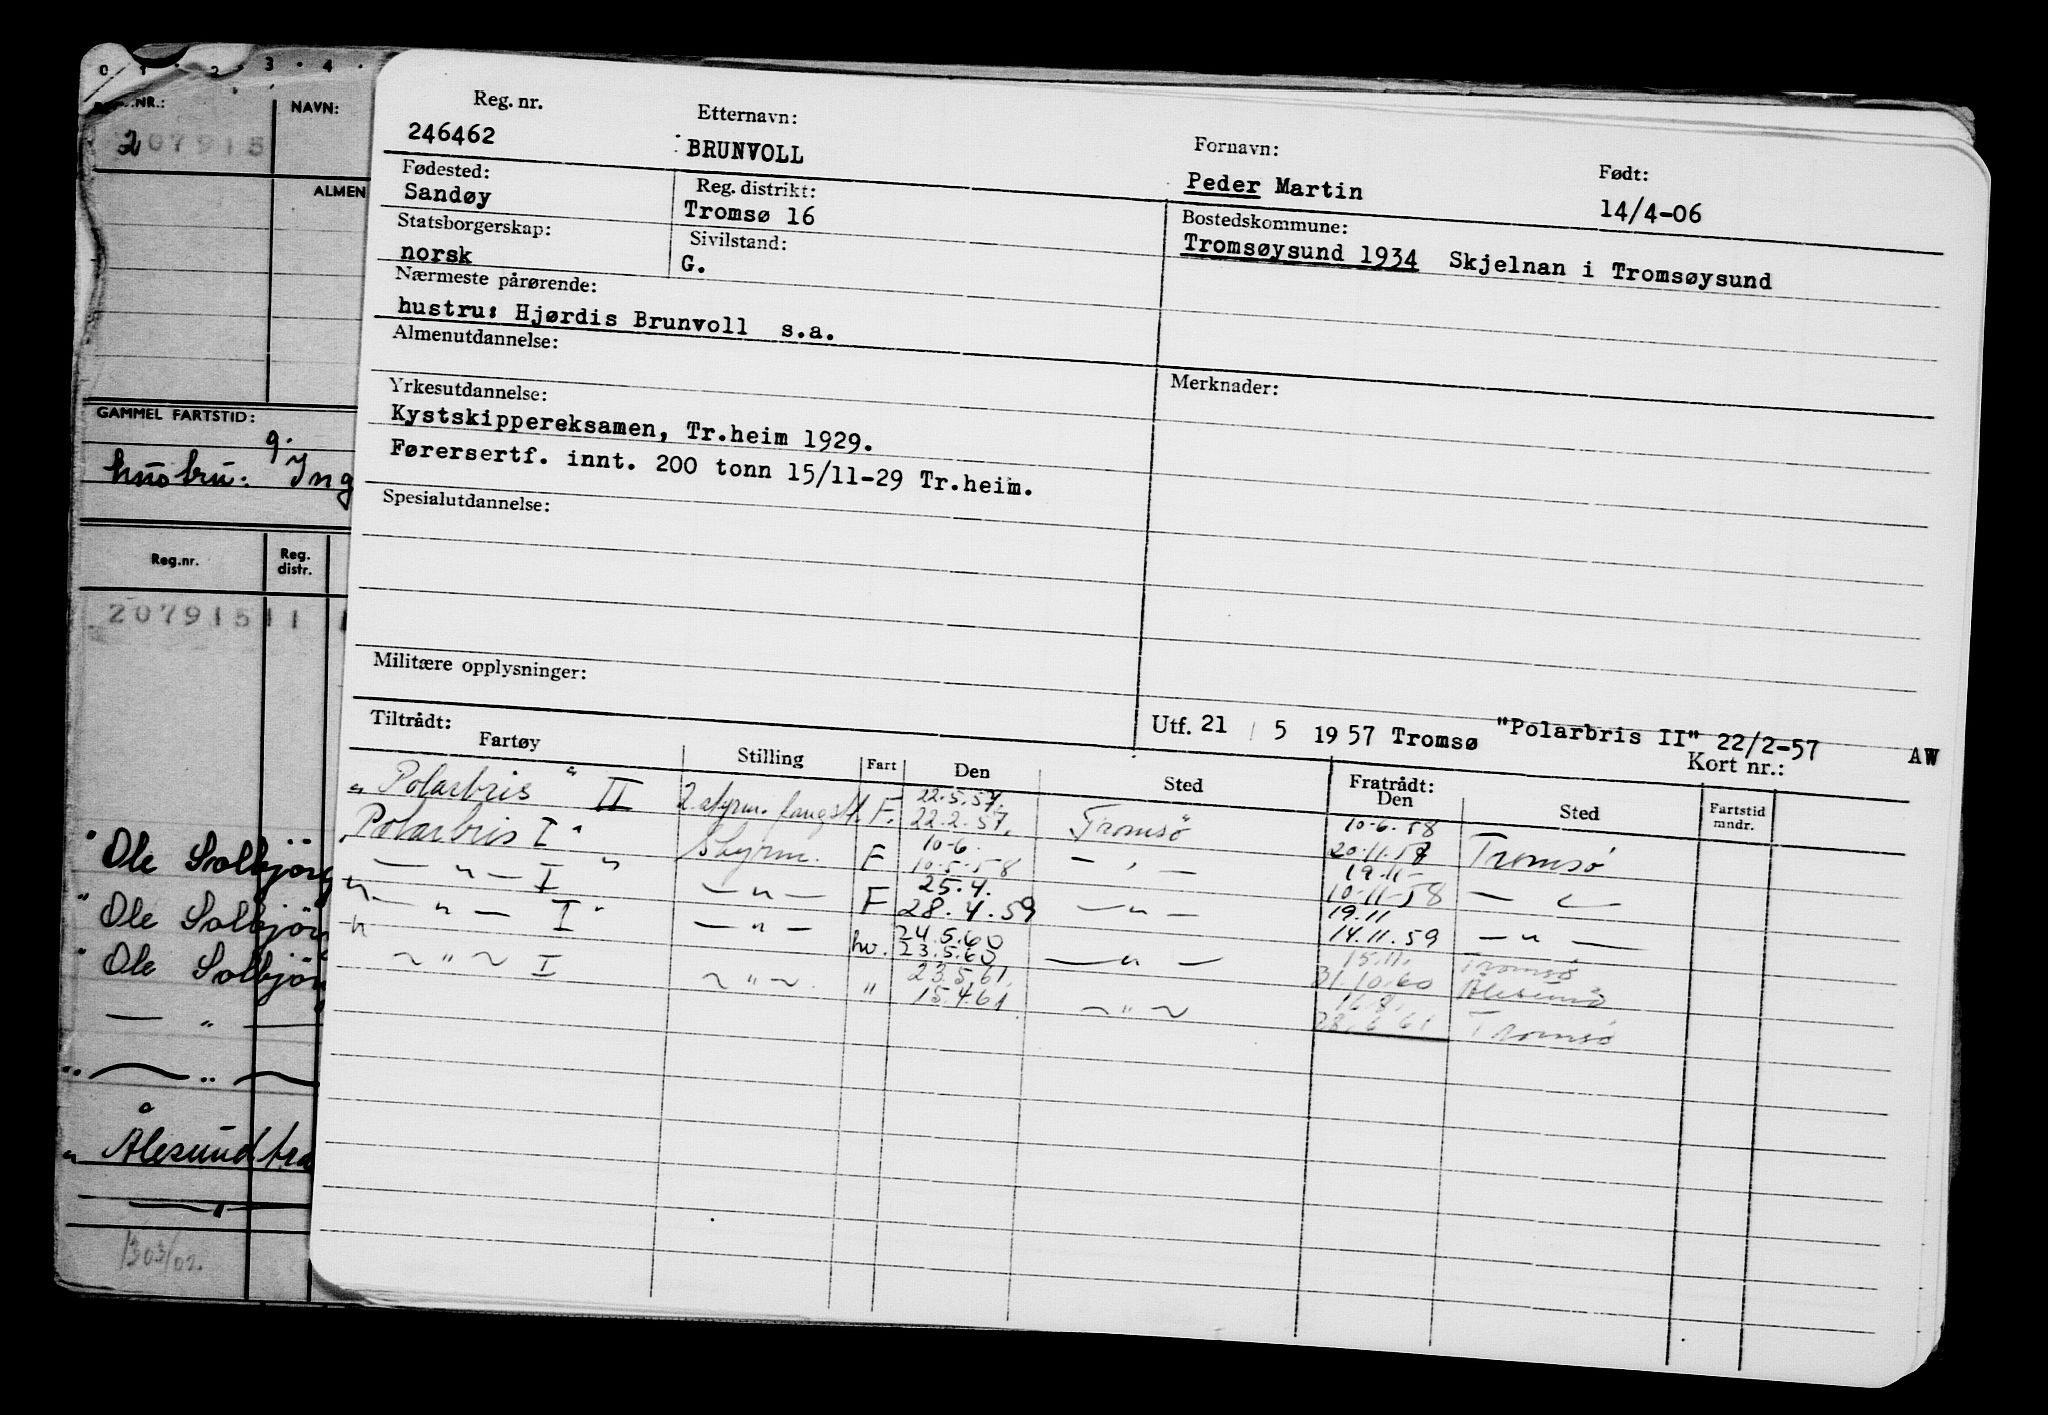 0 1 2 3 4
NR.: NAVN:
207915
ALMEN
GAMMEL FARTSTID:
g.
hustru: Ing
Reg.nr. Reg. distr.
207915 11
"Ole Solbjörg
"Ole Solbjör
"Ole Solbjör
— " —
" — " —
" Ålesundtra
1303/02.
Reg. nr. Etternavn: Fornavn: Født:
246462 BRUNVOLL Peder Martin 14/4-06
Fødested: Reg. distrikt: Bostedskommune:
Sandøy Tromsø 16 Tromsøysund 1934 Skjelnan i Tromsøysund
Statsborgerskap: Sivilstand:
norsk G.
Nærmeste pårørende:
hustru: Hjørdis Brunvoll s.a.
Almenutdannelse:
Yrkesutdannelse: Merknader:
Kystskippereksamen, Tr.heim 1929.
Førersertf. innt. 200 tonn 15/11-29 Tr.heim.
Spesialutdannelse:
Militære opplysninger:
Utf. 21 / 5 1957 Tromsø "Polarbris II" 22/2-57 AW
Kort nr.:
Tiltrådt: Fratrådt:
Fartøy Stilling Fart Den Sted Den Sted Fartstid mndr.
22.5.57. 10-6.58
"Polarbris" II 2 styrm. fangst. F. 22.2.57. Tromsø 20.11.57 Tromsø
10-6. 19.11-
"Polarbris I" Styrm. F 10-5-58 — " — 10-11-58 — " —
25.4. 19.11
" — " — I" — " — F 28.4.59 — " — 14.11.59 — " —
24.5.60 15.11. Tromsø
" — " — I" — " — hv. 23.5.60 — " — 31.10.60 Ålesund
23.5.61. 16.8.
" — " — I — " — " 15.4.61 — " — 28.6.61 Tromsø